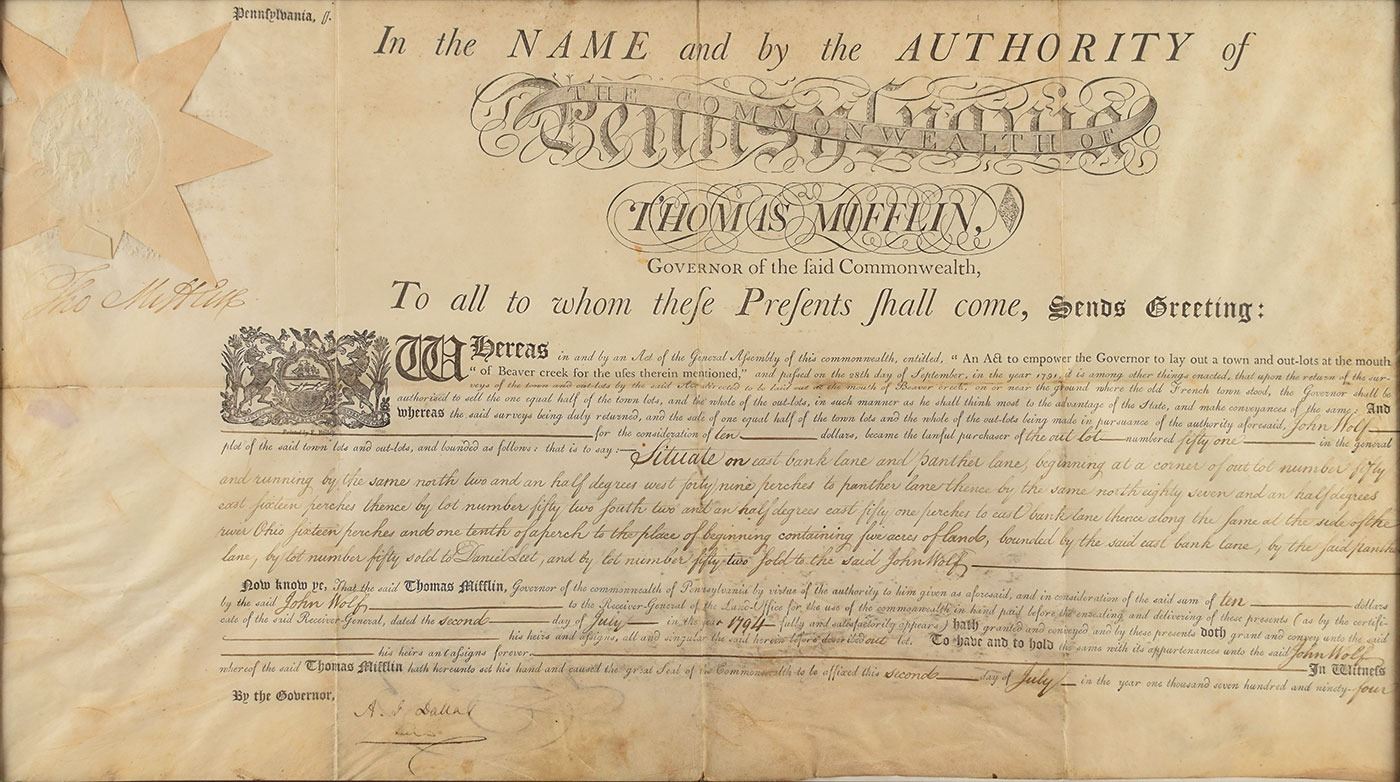 Pennsylvania, ſſ.
In the NAME and by the AUTHORITY of
THE COMMONWEALTH OF
Pennsylvania
THOMAS MIFFLIN,
GOVERNOR of the ſaid Commonwealth,
To all to whom theſe Preſents ſhall come, Sends Greeting:
WHereas in and by an Act of the General Aſſembly of this commonwealth, entitled, “ An Act to empower the Governor to lay out a town and out-lots at the mouth
“ of Beaver creek for the uſes therein mentioned,” and paſſed on the 28th day of September, in the year 1791, it is among other things enacted, that upon the return of the sur-
veys of the town and out-lots by the said Act directed to be laid out at the mouth of Beaver creek, on or near the ground where the old French town stood, the Governor shall be
authorized to sell the one equal half of the town lots, and the whole of the out-lots, in such manner as he shall think most to the advantage of the State, and make conveyances of the same: And
whereas the said surveys being duly returned, and the sale of one equal half of the town lots and the whole of the out-lots being made in pursuance of the authority aforesaid, John Wolf
for the consideration of ten dollars, became the lawful purchaser of the out lot numbered fifty one in the general
plot of the said town lots and out-lots, and bounded as follows: that is to say: Situate on east bank lane and panther lane, beginning at a corner of out lot number fifty
and running by the same north two and an half degrees west forty nine perches to panther lane thence by the same north eighty seven and an half degrees
east sixteen perches thence by lot number fifty two south two and an half degrees east fifty one perches to east bank lane thence along the same at the side of the
river Ohio sixteen perches and one tenth of a perch to the place of beginning containing five acres of land, bounded by the said east bank lane, by the said panther
lane, by lot number fifty sold to Daniel Leet, and by lot number fifty two sold to the said John Wolf
Now know ye, That the said Thomas Mifflin, Governor of the commonwealth of Pennsylvania by virtue of the authority to him given as aforesaid, and in consideration of the said sum of ten dollars
by the said John Wolf to the Receiver-General of the Land-Office for the use of the commonwealth in hand paid before the ensealing and delivering of these presents (as by the certifi-
cate of the said Receiver-General, dated the second day of July in the year 1794 fully and satisfactorily appears) hath granted and conveyed and by these presents doth grant and convey unto the said
his heirs and assigns, all and singular the said herein before described out lot. To have and to hold the same with its appurtenances unto the said John Wolf
his heirs and assigns forever. In Witness
whereof the said Thomas Mifflin hath hereunto set his hand and caused the great Seal of the Commonwealth to be affixed this second day of July in the year one thousand seven hundred and ninety-four
By the Governor,
A. J. Dallas